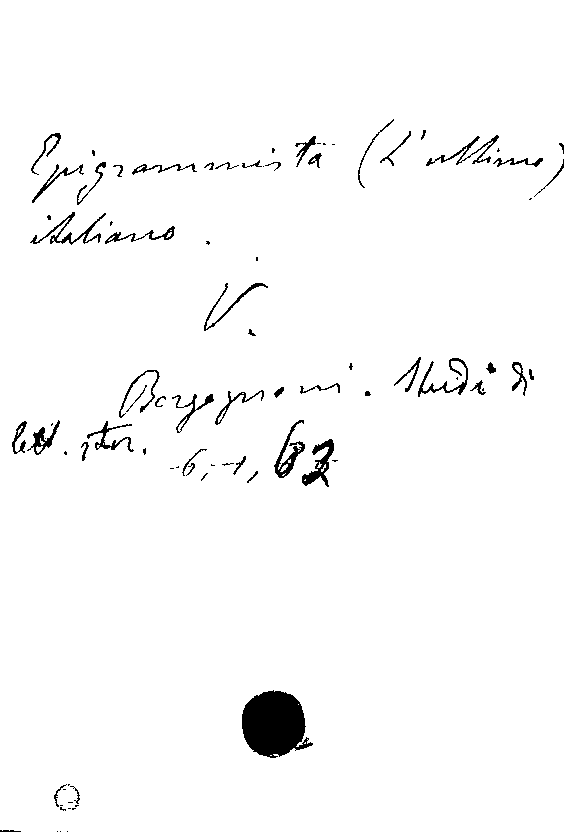 Epigrammista (L'ultimo)
italiano.
V.
Borgognoni. Studi di
lett. stor.
6,-1, 63